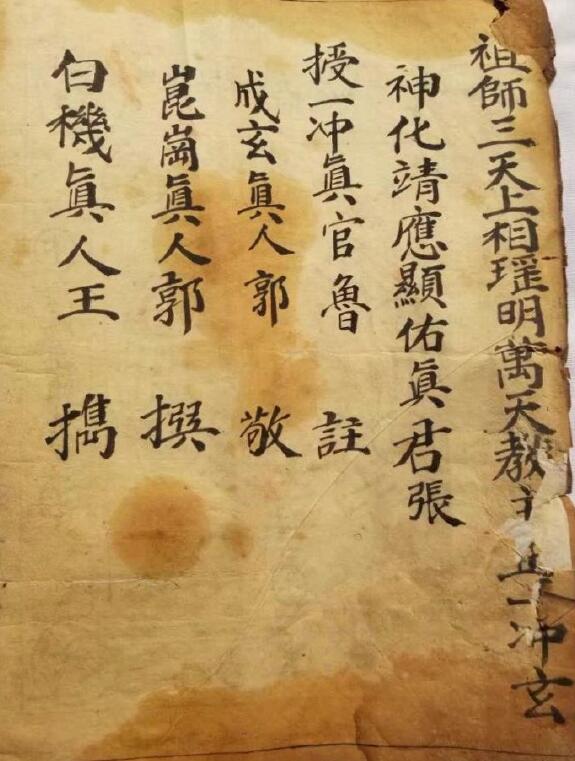 祖師三天上相瑶明萬天教主真一冲玄
神化靖應顯佑眞君張
授一冲眞官魯 註
成玄眞人郭 敬
崑崗眞人郭 撰
白機眞人王 擕